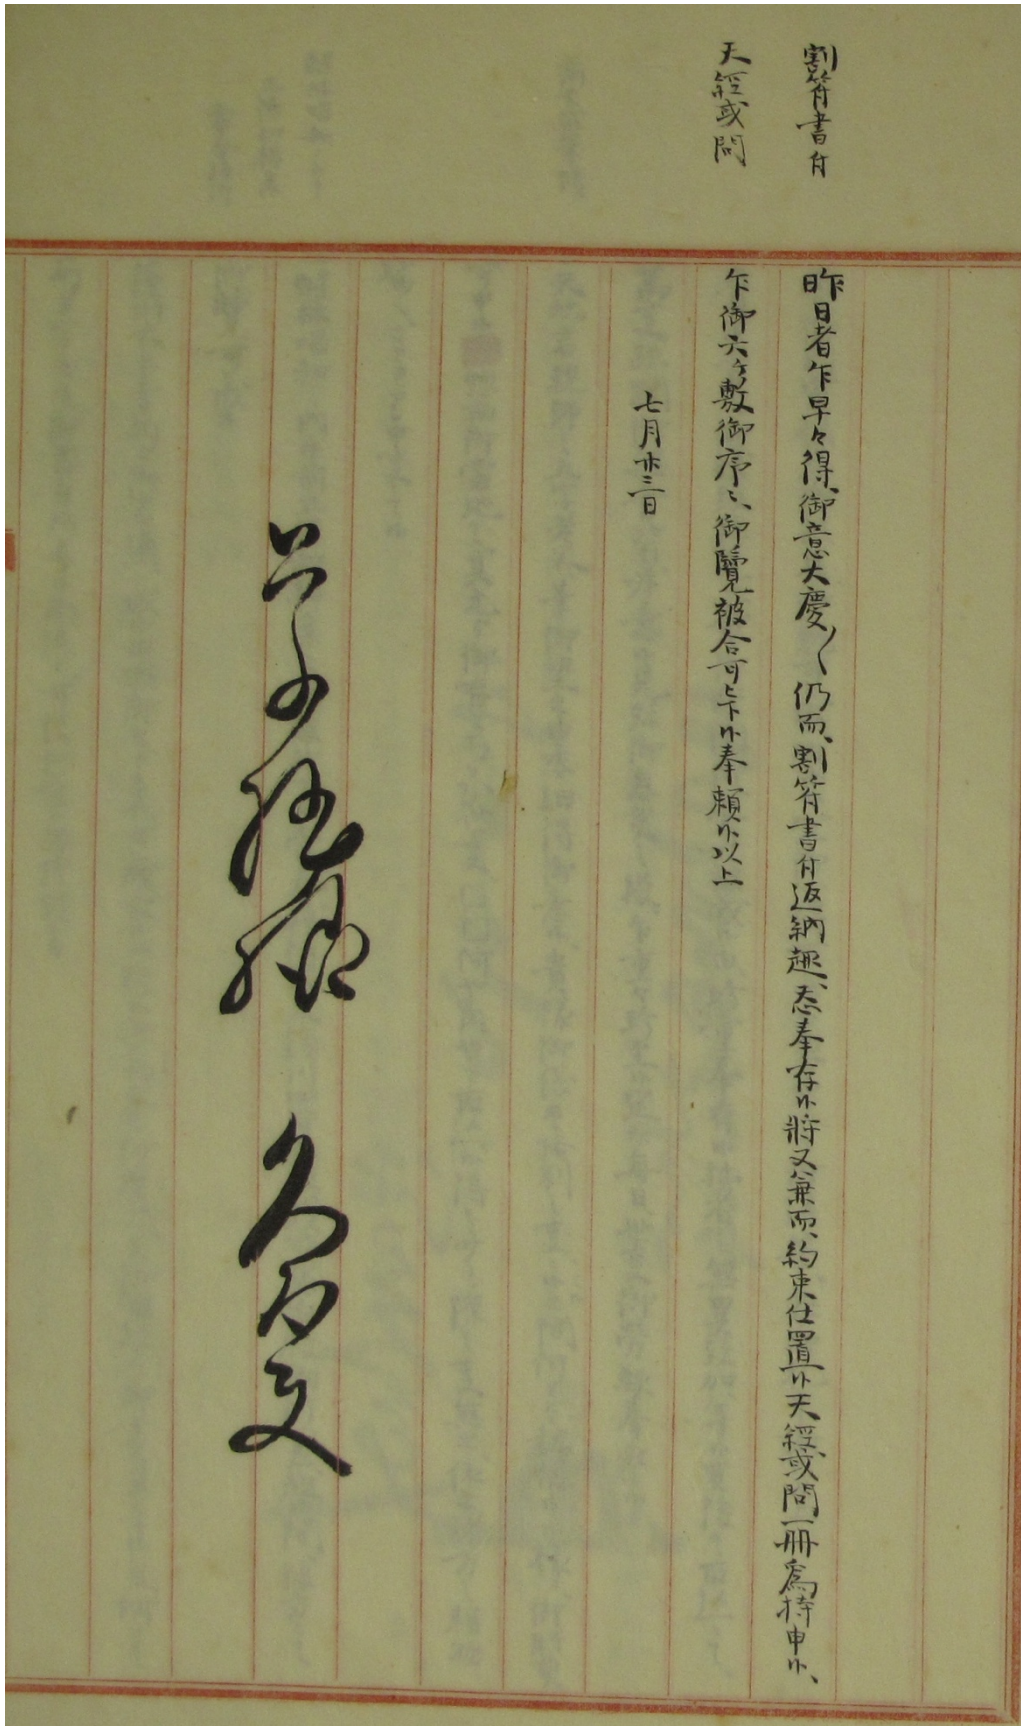 割符書付
天經或問
昨日者乍早々得、御意大慶〳〵仍而、割符書付返納趣、忝奉存候将又兼而、約束仕置候天經或問一冊為持申候、
乍御六ケ敷御序ニ、御覧被合可被下候奉頼候以上
七月廿三日